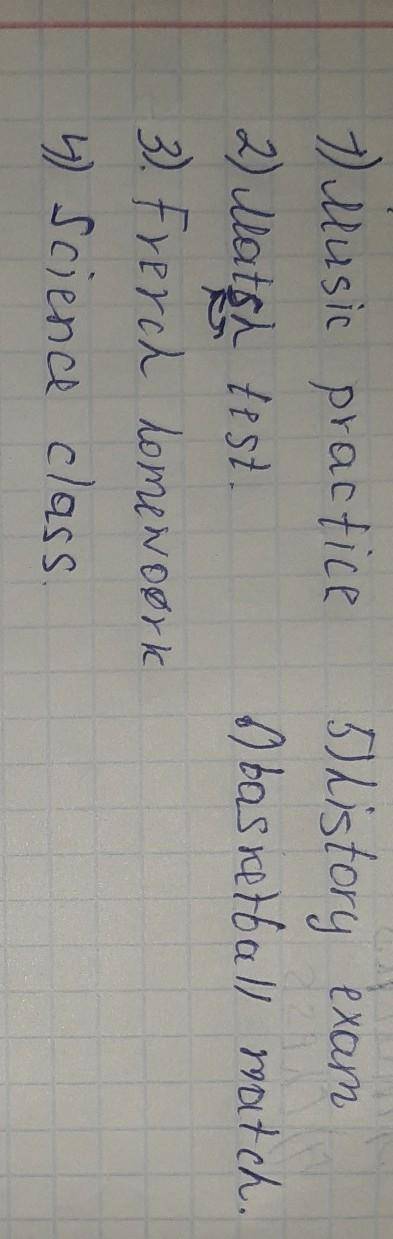 1) Music practice
2) Matsh test.
3). French homework
4) Science class.
5) history exam
6) basketball match.